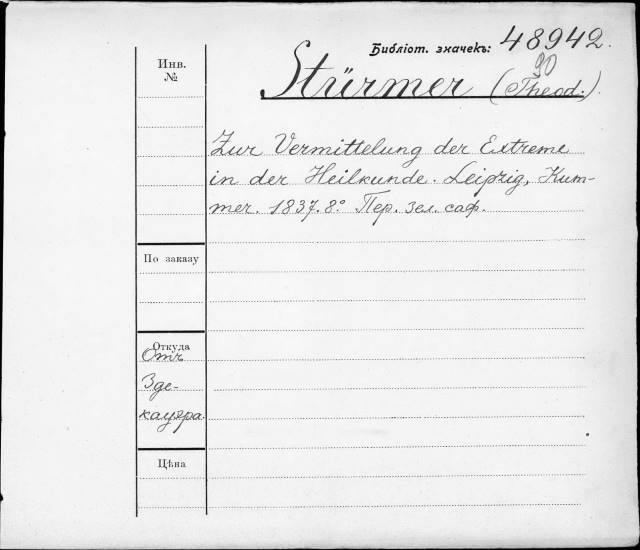 Библіот. значекъ: 48942.
90
Инв.
№
Stürmer (Theod.).
Zur Vermittelung der Extreme
in der Heilkunde. Leipzig, Kum-
mer. 1837. 8°. Пер. зел. саф.
По заказу
Откуда
Отъ
Зде-
кауера.
Цѣна